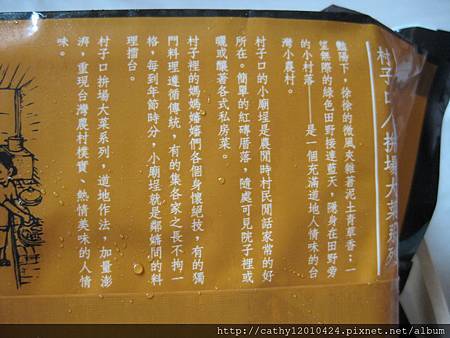 村子口/拚場大菜系列
豔陽下，徐徐的微風夾雜著泥土青草香；一
望無際的綠色田野接連藍天，隱身在田野旁
的小村落——是一個充滿道地人情味的台
灣小農村。
村子口的小廟埕是農閒時村民閒話家常的好
所在。簡單的紅磚厝落，隨處可見院子裡或
曬或釀著各式私房菜。
村子裡的媽媽嬸嬸們各個身懷絕技，有的獨
門料理遵循傳統，有的集客家之長不拘一
格，每到年節時分，小廟埕就是鄰嬉間的料
理擂台。
村子口拚場大菜系列，道地作法，加量澎
湃，重現台灣農村樸實、熱情美味的人情
味。
http://cathy12010424.pixnet.net/album